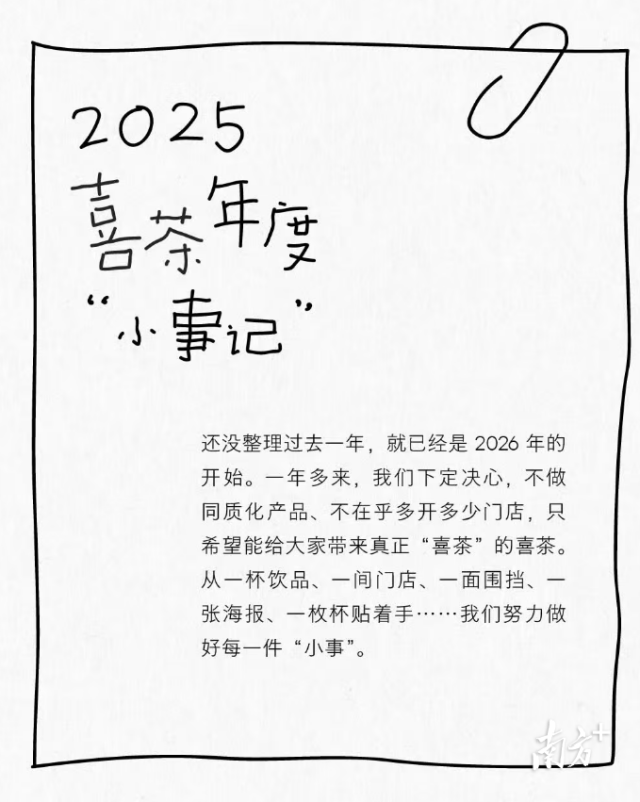 2025
喜茶年度
“小事记”
还没整理过去一年，就已经是 2026 年的
开始。一年多来，我们下定决心，不做
同质化产品、不在乎多开多少门店，只
希望能给大家带来真正“喜茶”的喜茶。
从一杯饮品、一间门店、一面围挡、一
张海报、一枚杯贴着手……我们努力做
好每一件“小事”。
南方+